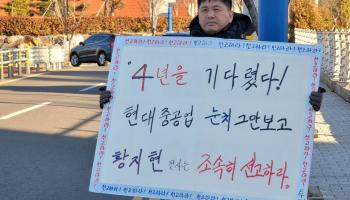 "4년을 기다렸다!
현대중공업 눈치그만보고
황지현 판사는 조속히 선고하라.